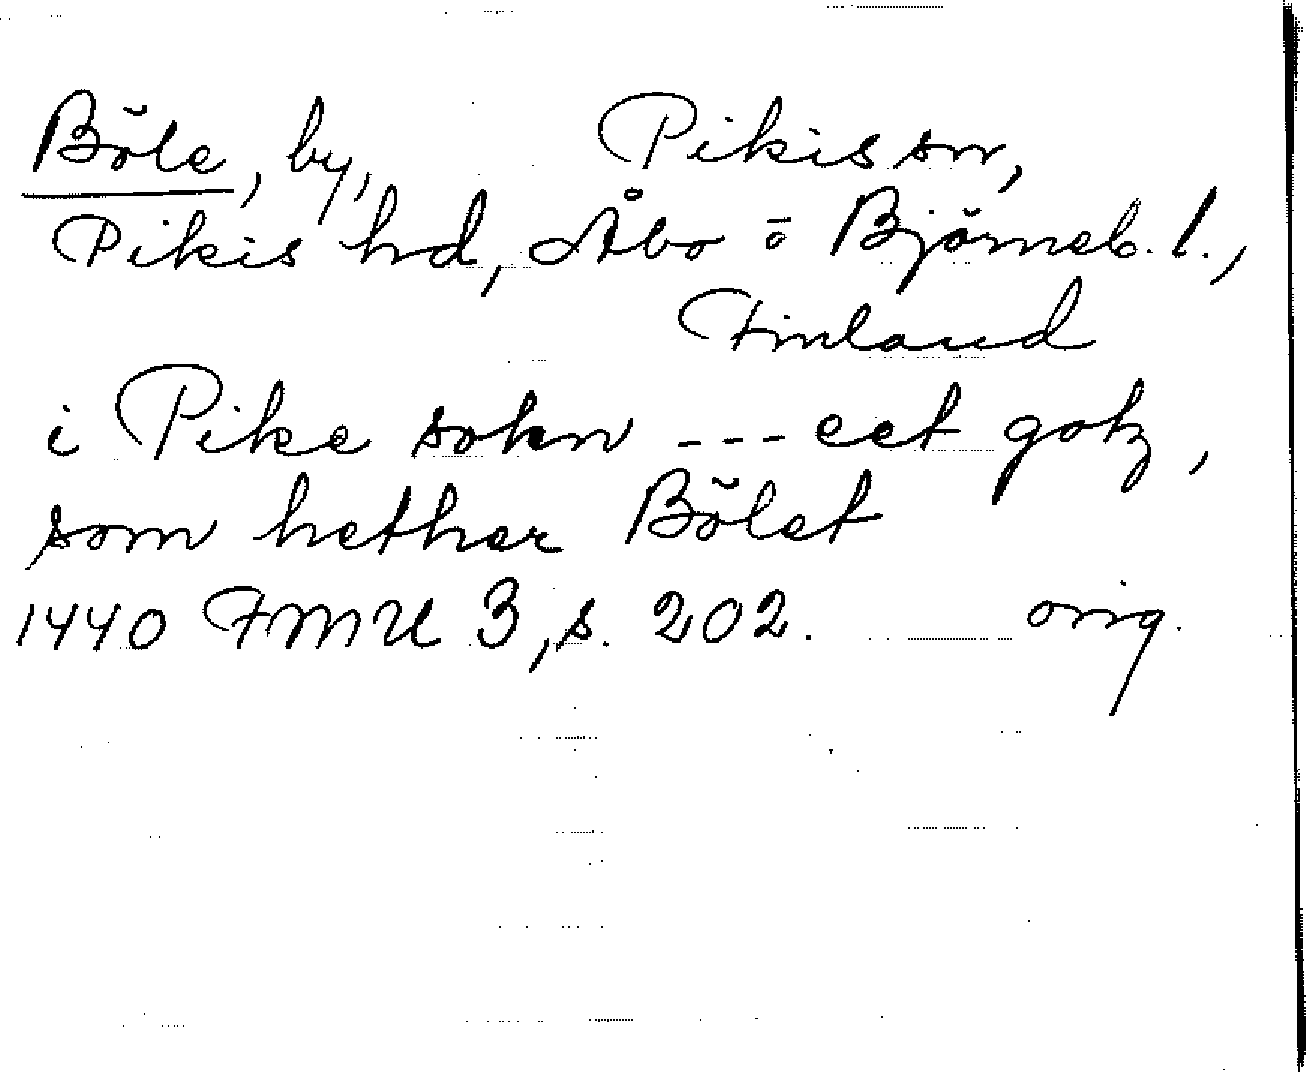 Böle, by, Pikis sn,
Pikis hd, Åbo o Björneb. l.,
Finland
i Pike sokn --- eet gotz,
som hether Bölet
1440 FMU 3, s. 202. orig.